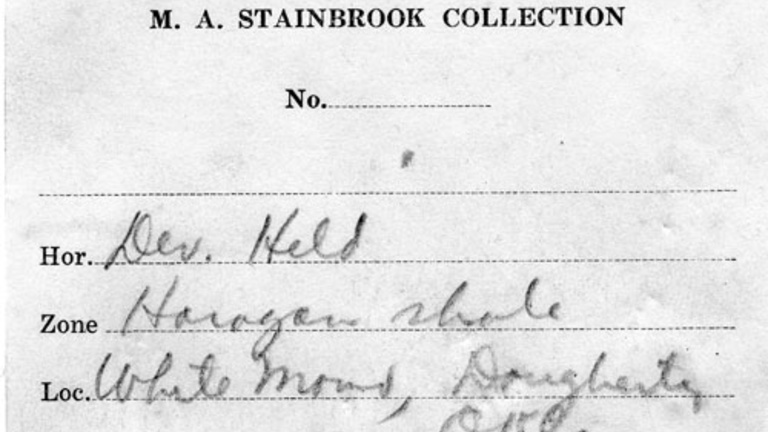 M. A. STAINBROOK COLLECTION
No.
Hor. Dev. Held
Zone Haragan shale
Loc. White Mound, Dougherty
Okl.